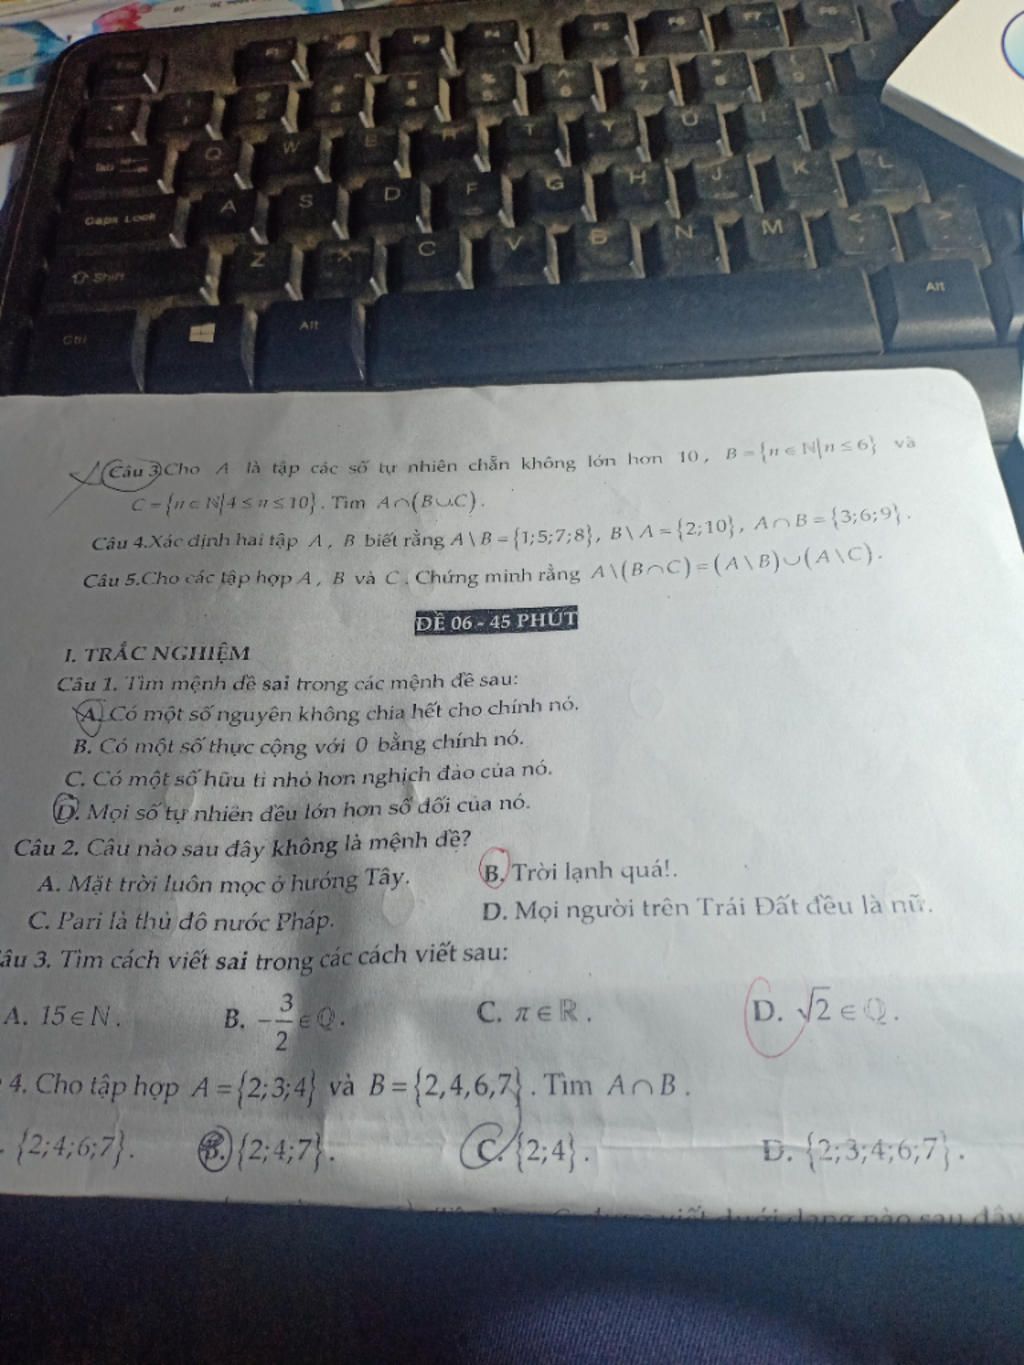 Câu 3.Cho A là tập các số tự nhiên chẵn không lớn hơn 10, B = {n ∈ ℕ|n ≤ 6} và
C = {n ∈ ℕ|4 ≤ n ≤ 10}. Tìm A∩(B∪C).
Câu 4.Xác định hai tập A, B biết rằng A \ B = {1;5;7;8}, B \ A = {2;10}, A ∩ B = {3;6;9}.
Câu 5.Cho các tập hợp A, B và C. Chứng minh rằng A \ (B∩C) = (A \ B)∪(A \ C).
ĐỀ 06 - 45 PHÚT
I. TRẮC NGHIỆM
Câu 1. Tìm mệnh đề sai trong các mệnh đề sau:
A. Có một số nguyên không chia hết cho chính nó.
B. Có một số thực cộng với 0 bằng chính nó.
C. Có một số hữu tỉ nhỏ hơn nghịch đảo của nó.
D. Mọi số tự nhiên đều lớn hơn số đối của nó.
Câu 2. Câu nào sau đây không là mệnh đề?
A. Mặt trời luôn mọc ở hướng Tây. B. Trời lạnh quá!.
C. Pari là thủ đô nước Pháp. D. Mọi người trên Trái Đất đều là nữ.
Câu 3. Tìm cách viết sai trong các cách viết sau:
A. 15 ∈ N. B. -3/2 ∈ ℚ. C. π ∈ ℝ. D. √2 ∈ ℚ.
4. Cho tập hợp A = {2;3;4} và B = {2,4,6,7}. Tìm A ∩ B.
{2;4;6;7}. B. {2;4;7}. C. {2;4}. D. {2;3;4;6;7}.
viết dưới dạng nào sau đây
Caps Lock
Shift
Ctrl
Alt
Alt
Q W E R T Y U I
A S D F G H J K L
Z X C V B N M